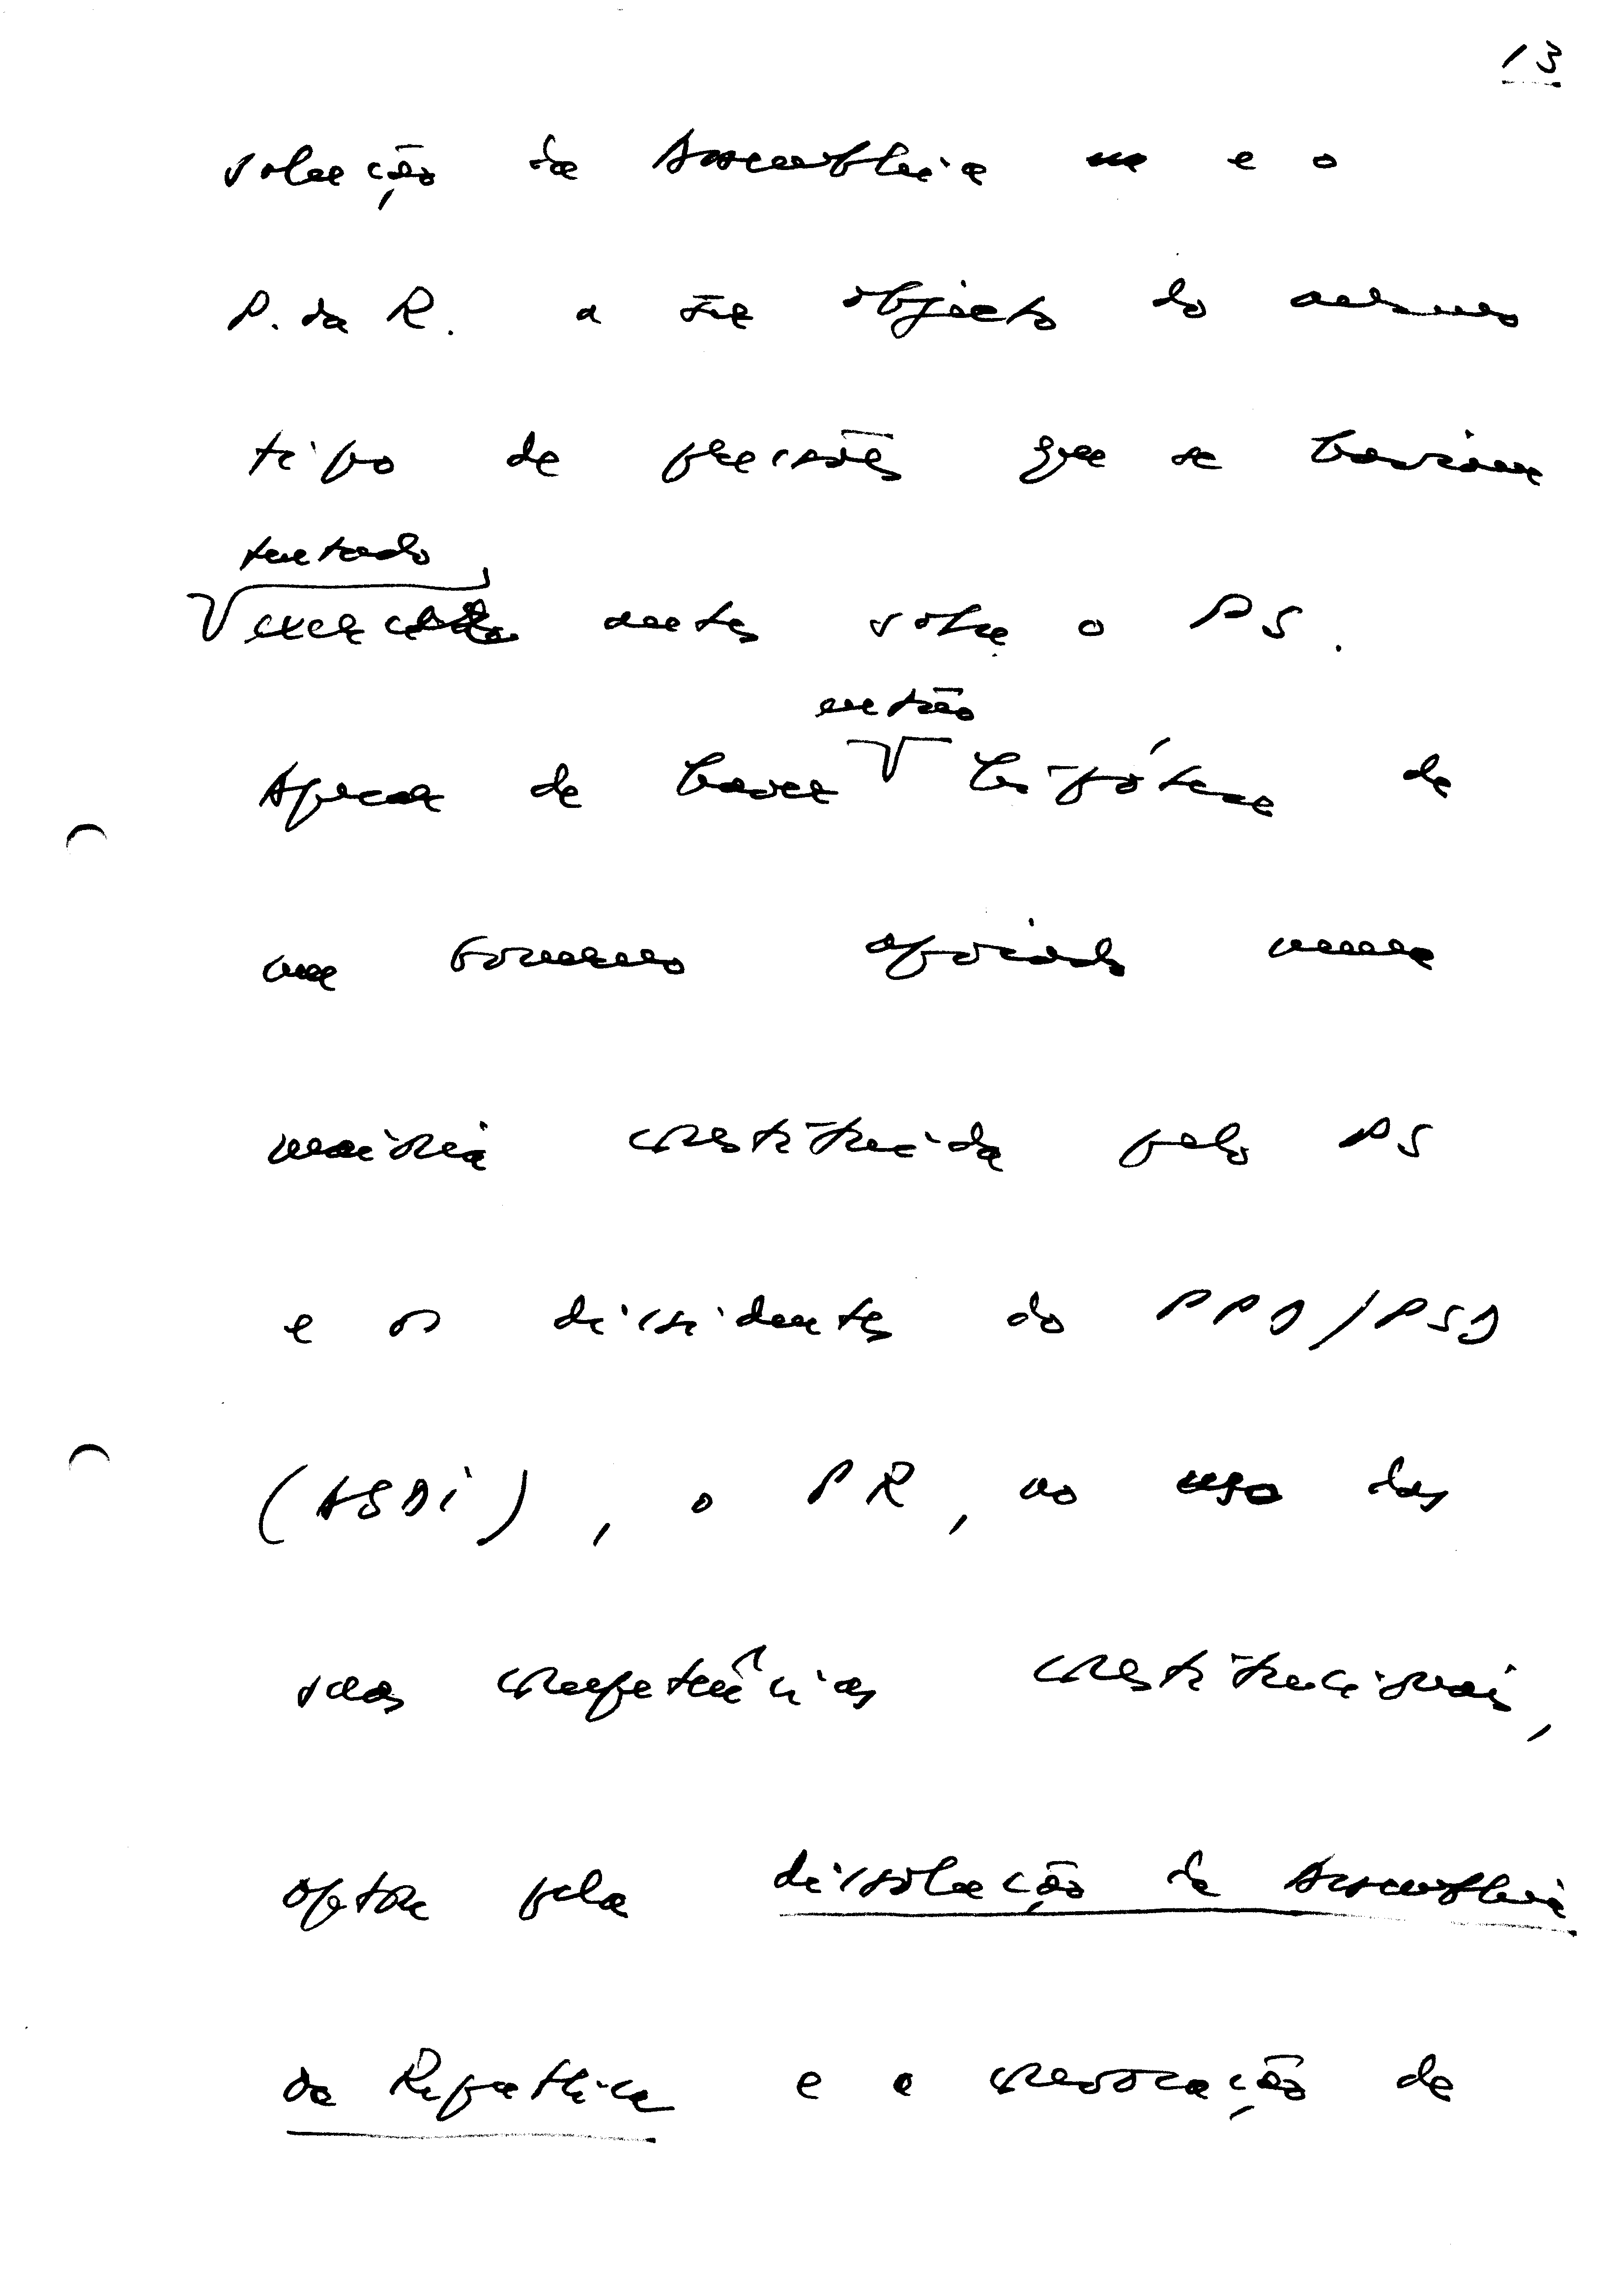 13
solução da Assembleia e o
P. da R. a ser objecto do mesmo
tipo de pressões que se haviam
tentado
exercer antes sobre o PS.
então
Apesar de haver hipótese de
um Governo apoiado numa
maioria constituída pelo PS
e os dissidentes do PPD/PSD
(ASDI), o PR, no uso das
suas competências constitucionais,
optou pela dissolução da Assembleia
da República e a convocação de